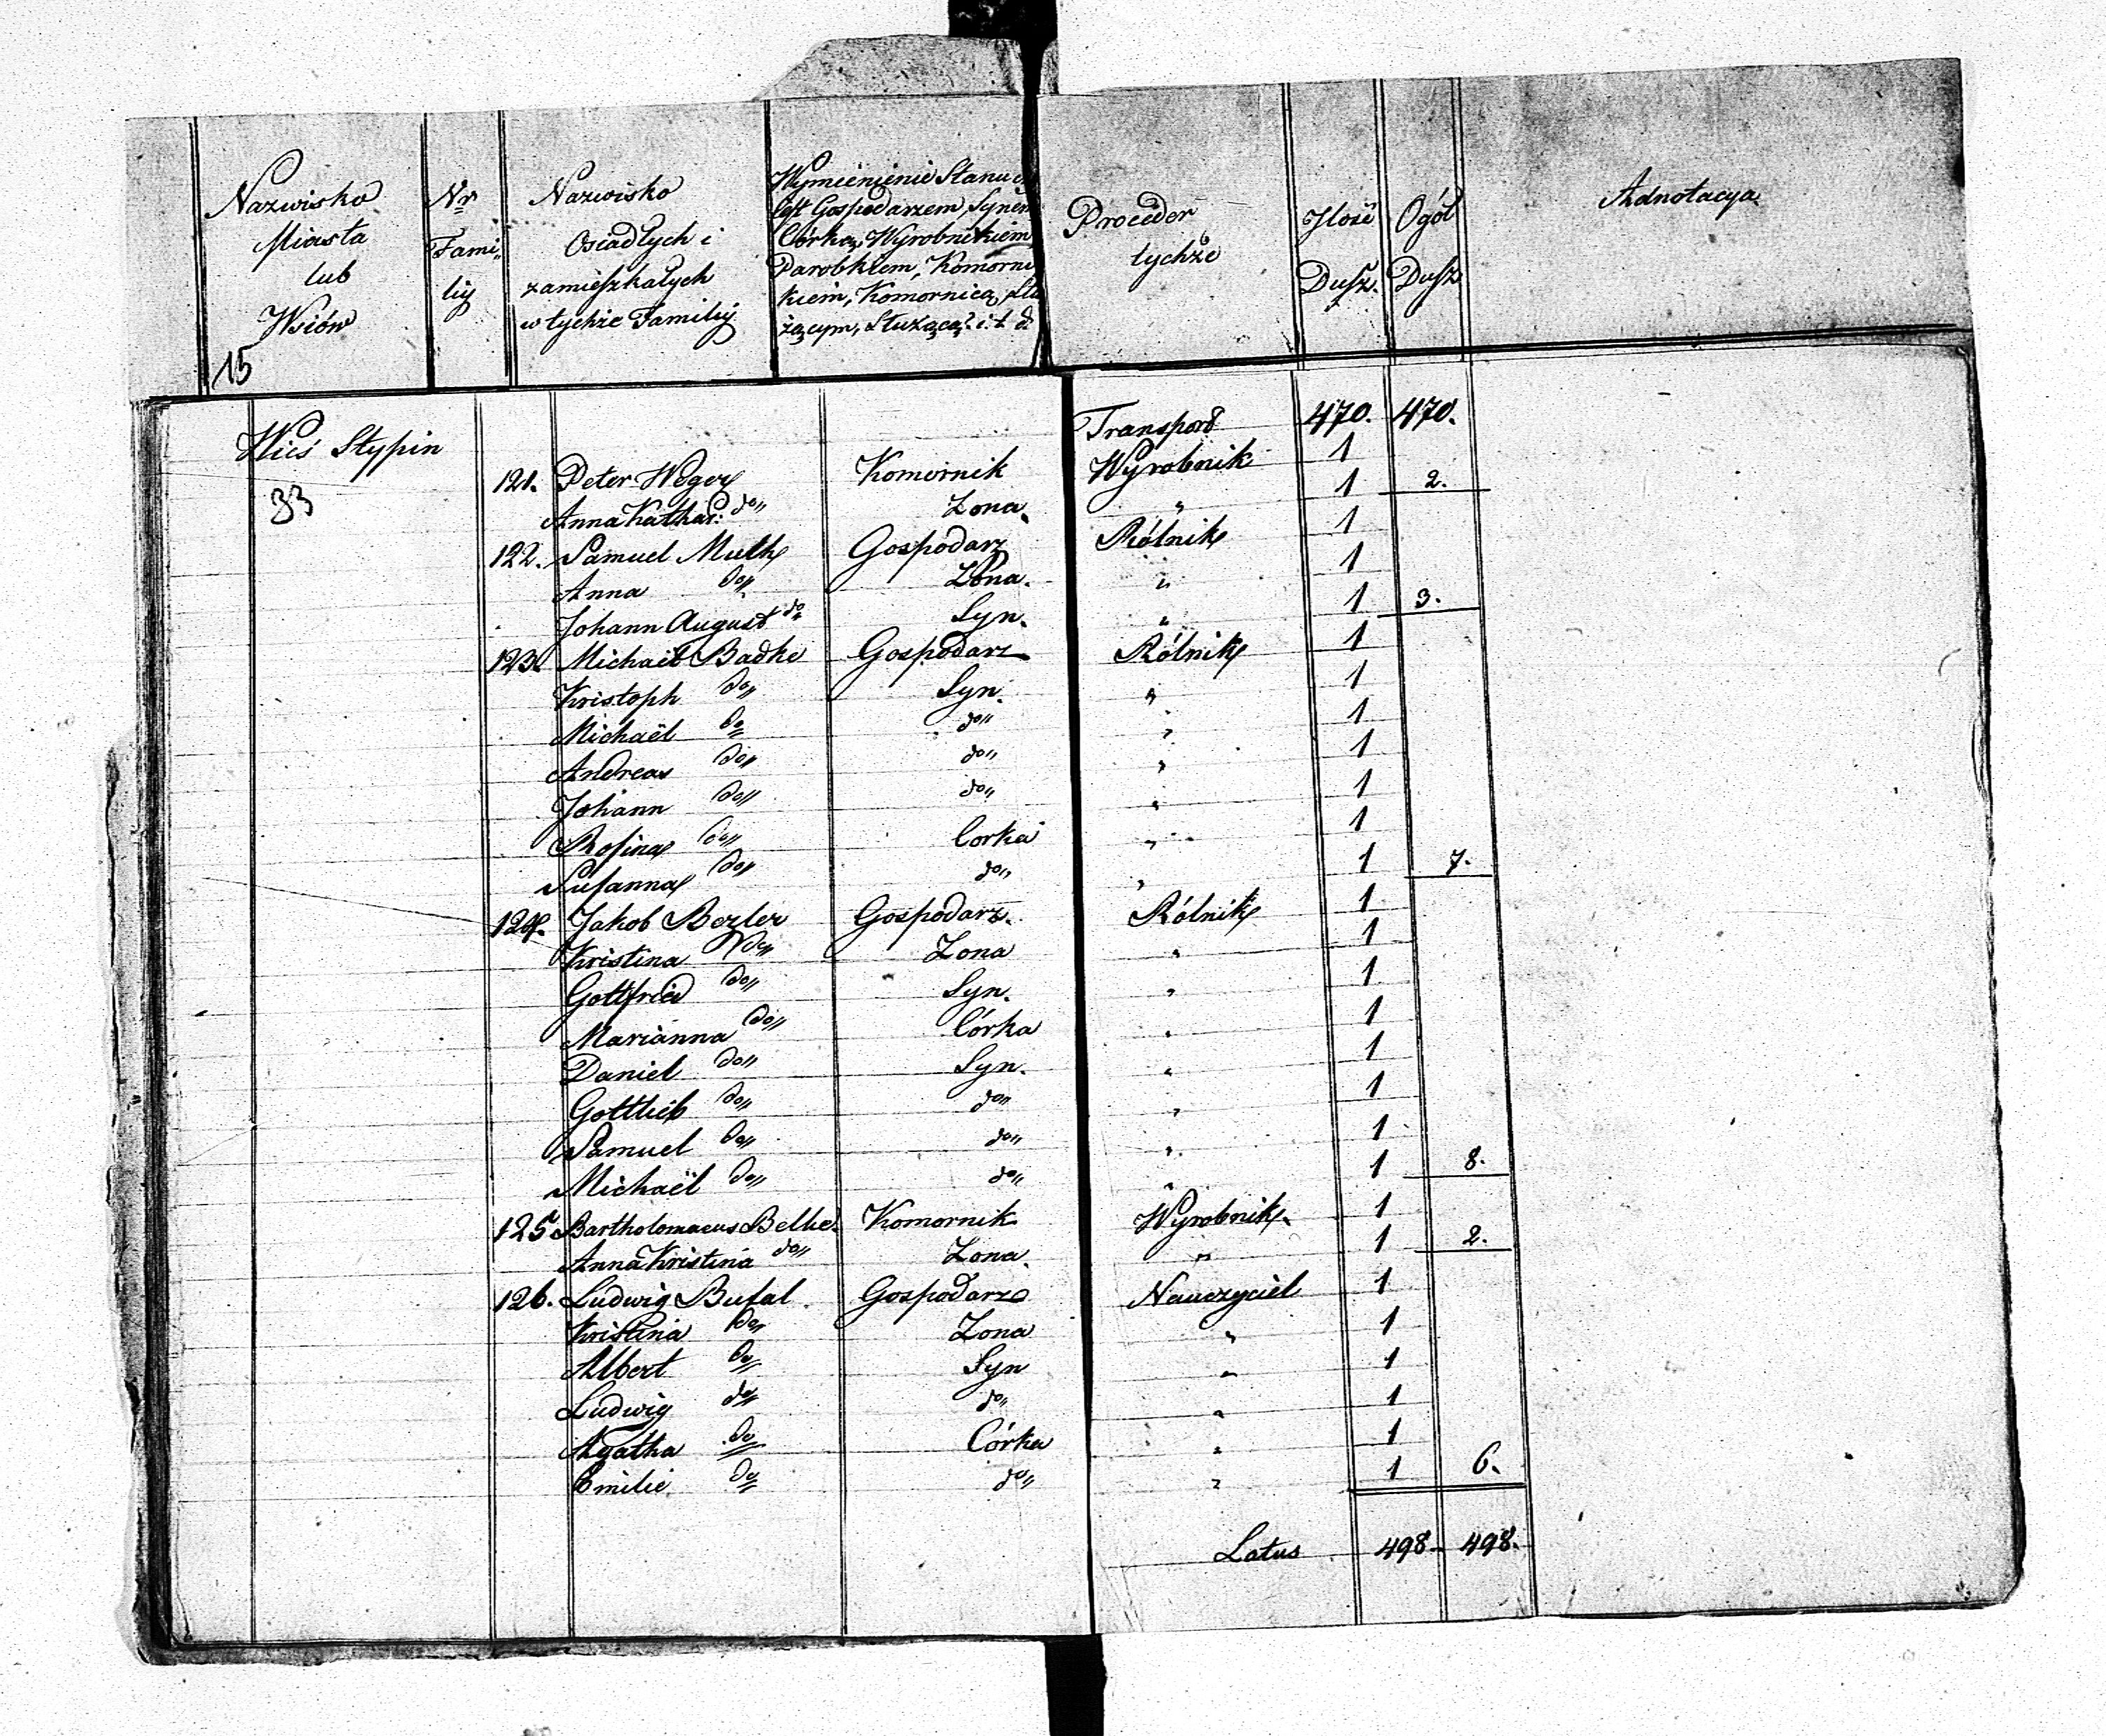 Nazwisko Miasta lub Wsiów
Nr Fami„ lij
Nazwisko Osiadłych i zamieszkałych w tychże Familij
Wymienienie Stanu czy
jest Gospodarzem, Synem
Córką, Wyrobnikiem
Parobkiem, Komorni
kiem, Komornicą, Słu
żącym, Służącą i. t. d.
Proceder tychże
Ilość Dusz.
Ogół Dusz
Adnotacya
15
Wieś Stypin
33
Transport 470. 470.
121. Peter Weger Komornik Wyrobnik 1
Anna Kathar: do„ Zona. „ 1 2.
122. Samuel Muth Gospodarz Rólnik 1
Anna do„ Zona. „ 1
Johann August do Syn. „ 1 3.
123. Michaël Badke Gospodarz Rólnik 1
Kristoph do„ Syn. „ 1
Michaël do do„ „ 1
Andreas do„ do„ „ 1
Johann do„ do„ „ 1
Rosina do„ Corka „ 1
Susanna do„ do„ „ 1 7.
124. Jakob Bezler Gospodarz. Rólnik 1
Kristina do„ Zona „ 1
Gottfried do„ Syn. „ 1
Marianna do„ Córka „ 1
Daniel do„ Syn. „ 1
Gottlieb do„ do„ „ 1
Samuel do„ do„ „ 1
Michaël do„ do„ „ 1 8.
125 Bartholomaeus Belke. Komornik Wyrobnik. 1
Anna Kristina do„ Zona. „ 1 2.
126. Ludwig Bufal. Gospodarz Nauczyciel 1
Kristina do„ Zona „ 1
Albert do Syn „ 1
Ludwig do„ do„ „ 1
Agatha do Córka „ 1
Emilie do do„ „ 1 6.
Latus 498 498.